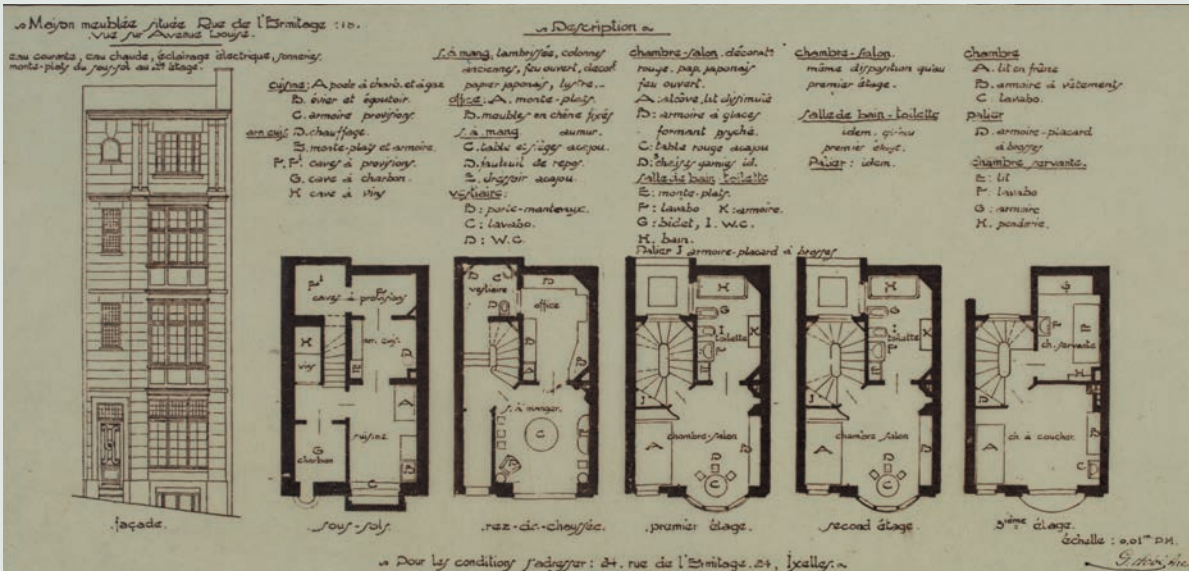 Maison meublée située Rue de l'Ermitage : 18.
Vue sur Avenue Louise.
eau courante, eau chaude, éclairage électrique, sonneries.
monte-plats du sous-sol au 2d étage.
Description
cuisine: A poele à charb. et à gaz
B. évier et égoutoir.
C. armoire provisions.
arr. cuis. D. chauffage.
E. monte-plats et armoire.
F. F¹. caves à provisions.
G. cave à charbon.
H cave à vins
s. à mang. lambrissée, colonnes
anciennes, feu ouvert, décorᵗ
papier japonais, lustre,..
office: A. monte-plats.
B. meubles en chêne fixés
s. à mang. au mur.
C. table et sièges acajou.
D. fauteuil de repos.
E. dressoir acajou.
vestiaire:
B: porte-manteaux.
C: lavabo.
D: W.C.
chambre-salon. décorᵗ
rouge. pap. japonais
feu ouvert.
A: alcôve, lit dissimulé
B: armoire à glaces
formant psyché.
C: table rouge acajou
D: chaises garnies id.
salle de bain-toilette
E: monte-plats.
F: lavabo K: armoire.
G: bidet, I. W.C.
H. bain.
Palier J armoire-placard à brosses
chambre-salon.
même disposition qu'au
premier étage.
salle de bain-toilette
idem. qu'au
premier étage.
Palier: idem.
chambre
A. lit en frêne
B. armoire à vêtements
C. lavabo.
palier
D. armoire-placard
à brosses
chambre servante.
E: lit
F. lavabo
G: armoire
H. penderie.
F¹
caves à provisions
F
H
vins
arr. cuis.
D
E
A
G
charbon
cuisine
B
C
vestiaire
D
C
B
office
B
A
s. à manger.
C
E
D
H
G
I
toilette
F
K
E
J
chambre-salon
A
B
D
C
H
G
I
toilette
F
K
E
J
chambre salon
A
B
D
C
G
F
E
ch. servante
H
D
ch. à coucher.
A
B
C
façade.
sous-sols.
rez-de-chaussée.
premier étage.
second étage.
3ième étage.
échelle : 0,01m P.M.
Pour les conditions s'adresser : 24. rue de l'Ermitage. 24, Ixelles.